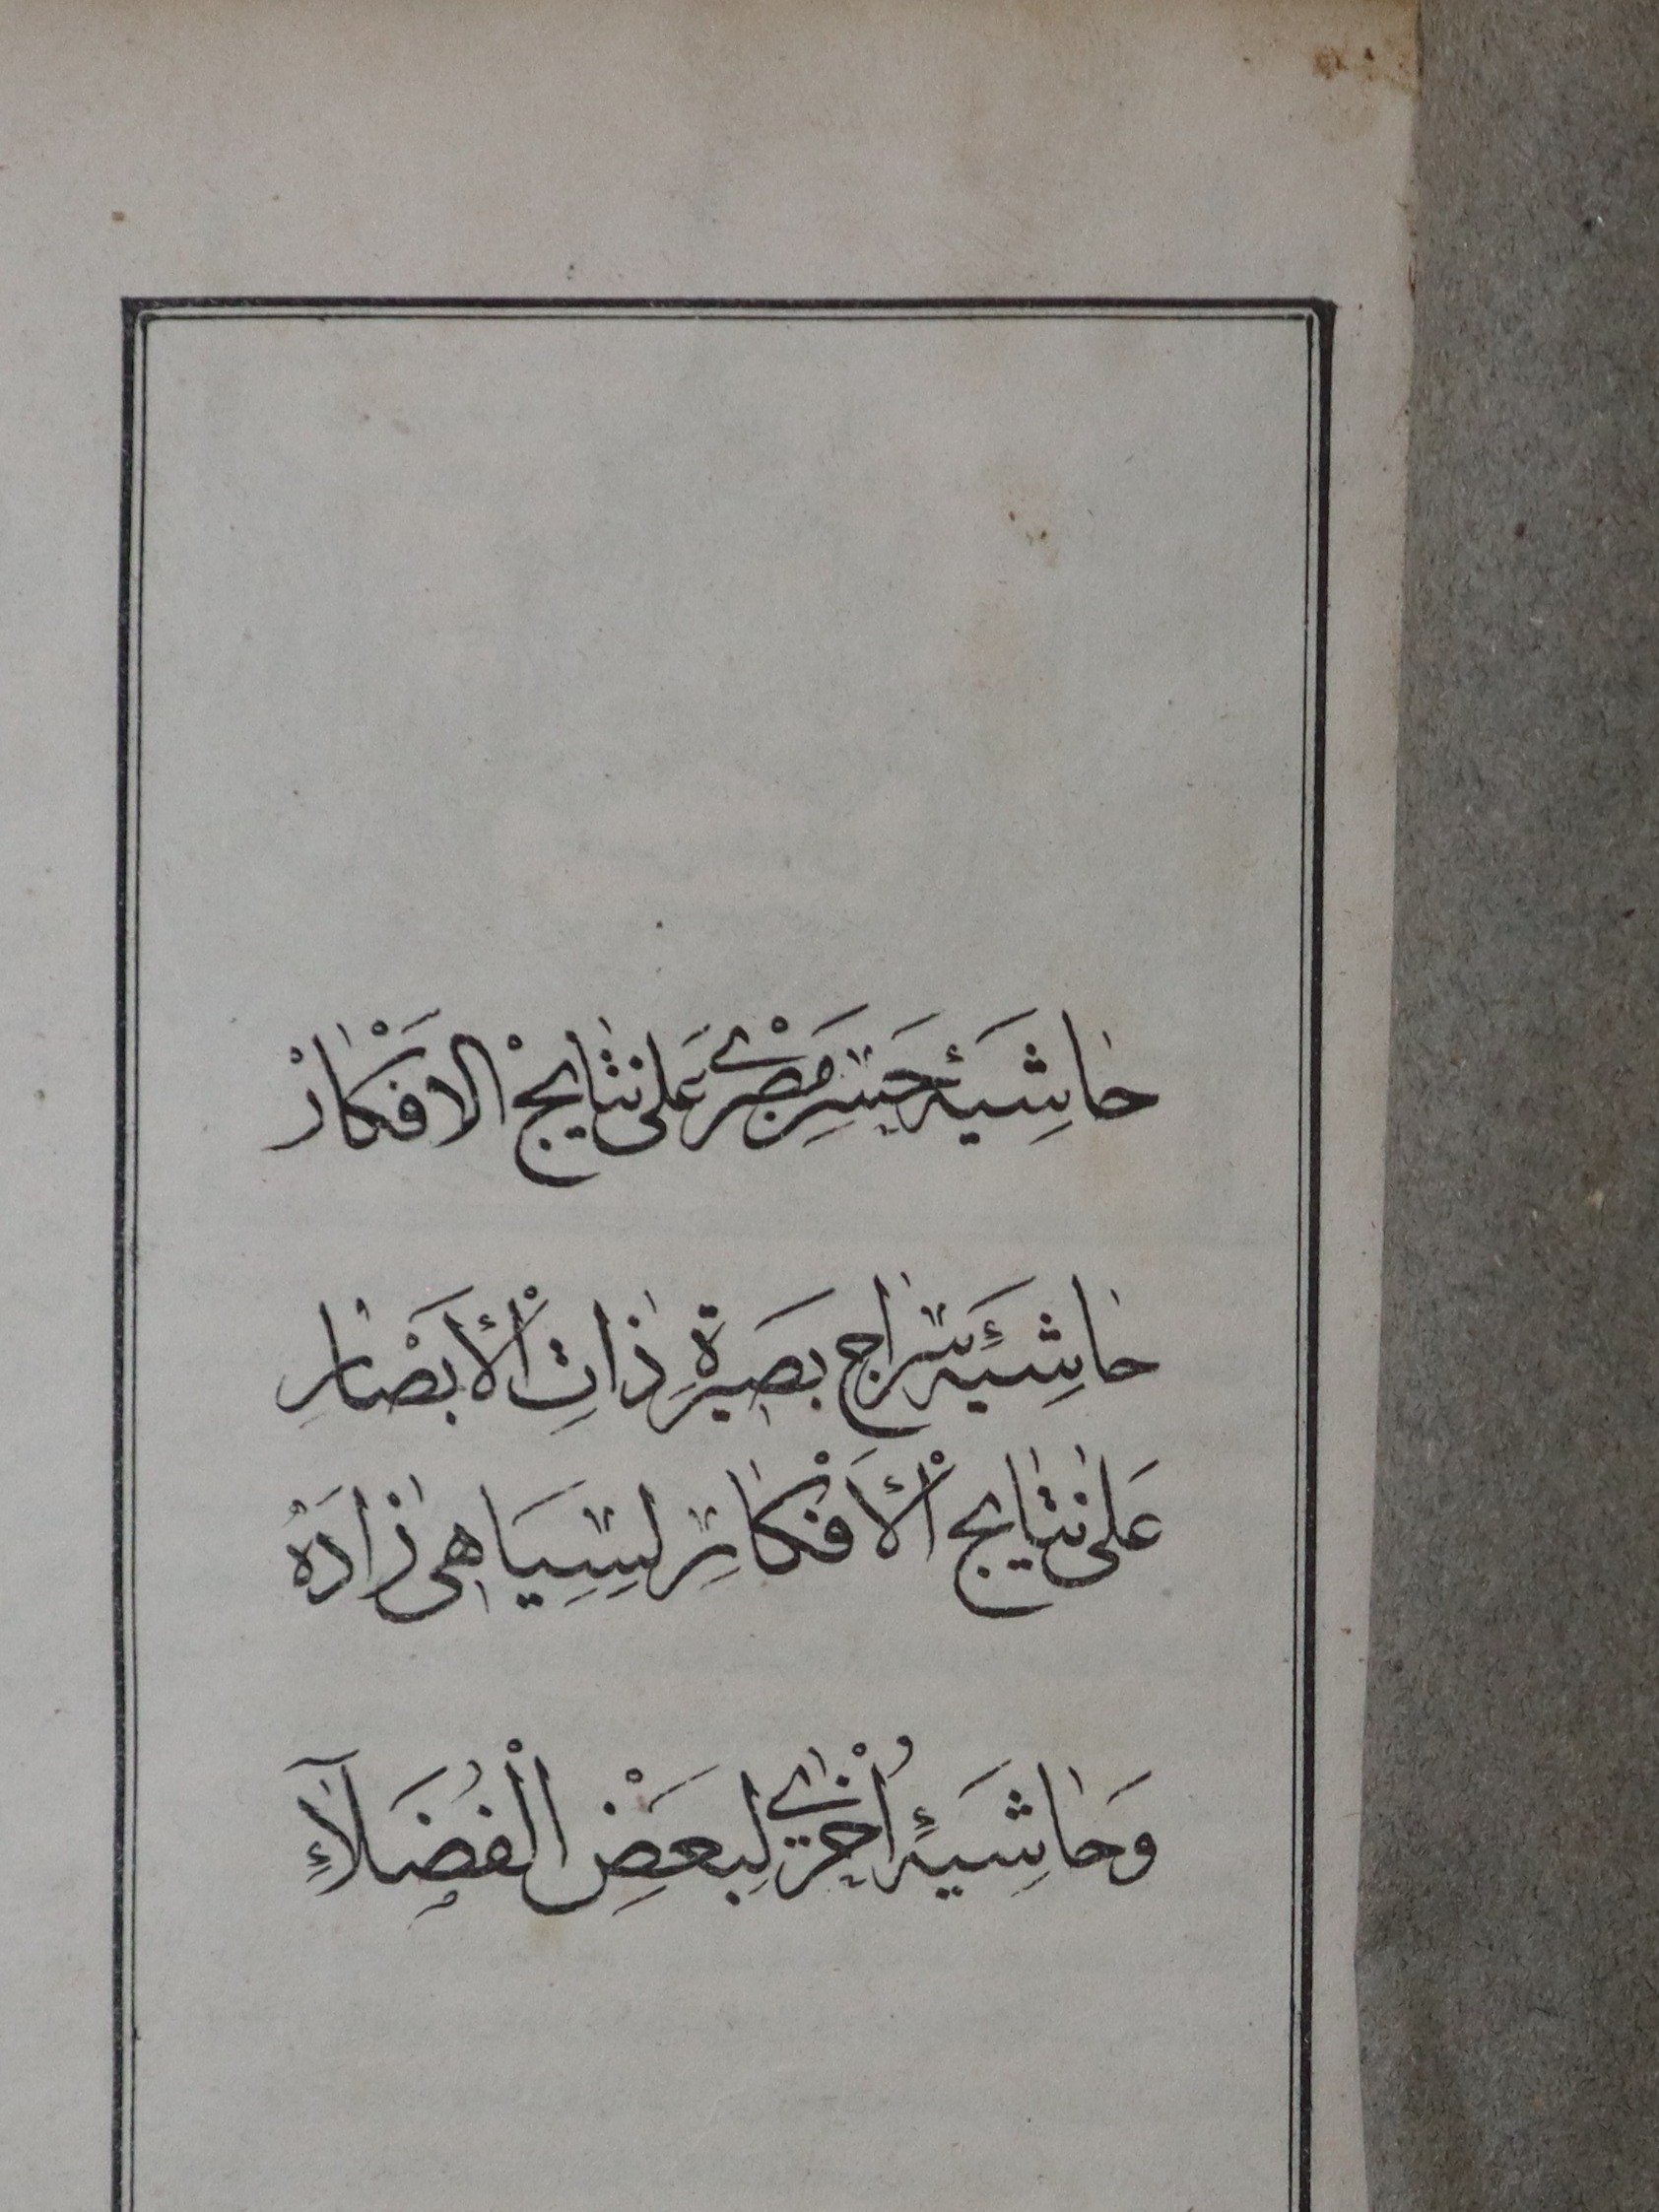 حَاشِيَۀ حَسَن مِصْرِي عَلٰى نَتَايِجْ الافْكَارْ
حَاشِيَۀ سِرَاج بَصيرَةِ ذَاتِ الْأَبْصَارِ
عَلٰى نَتَايِج الْأَفْكَارِ لِسِيَاهى زَادَهْ
وَحَاشِيَۀٌ اُخْرٰى لِبَعْضِ الْفُضَلَآءِ